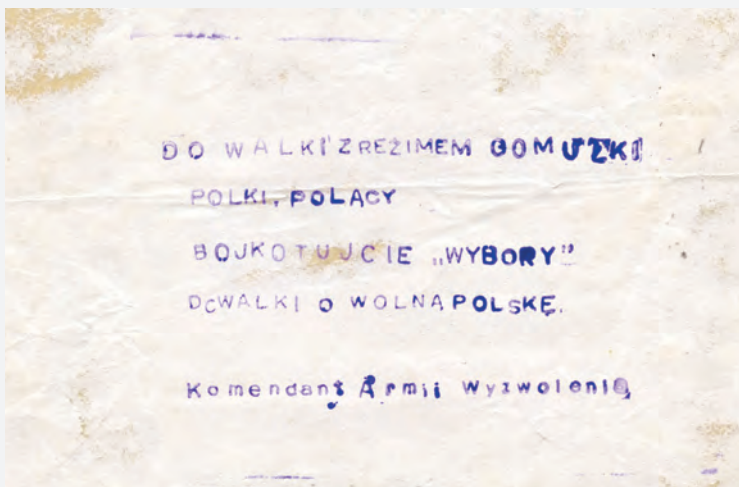 DO WALKI Z REŻIMEM GOMUŁKI
POLKI, POLACY
BOJKOTUJCIE „WYBORY”
DO WALKI O WOLNĄ POLSKĘ.
Komendant Armii Wyzwolenia